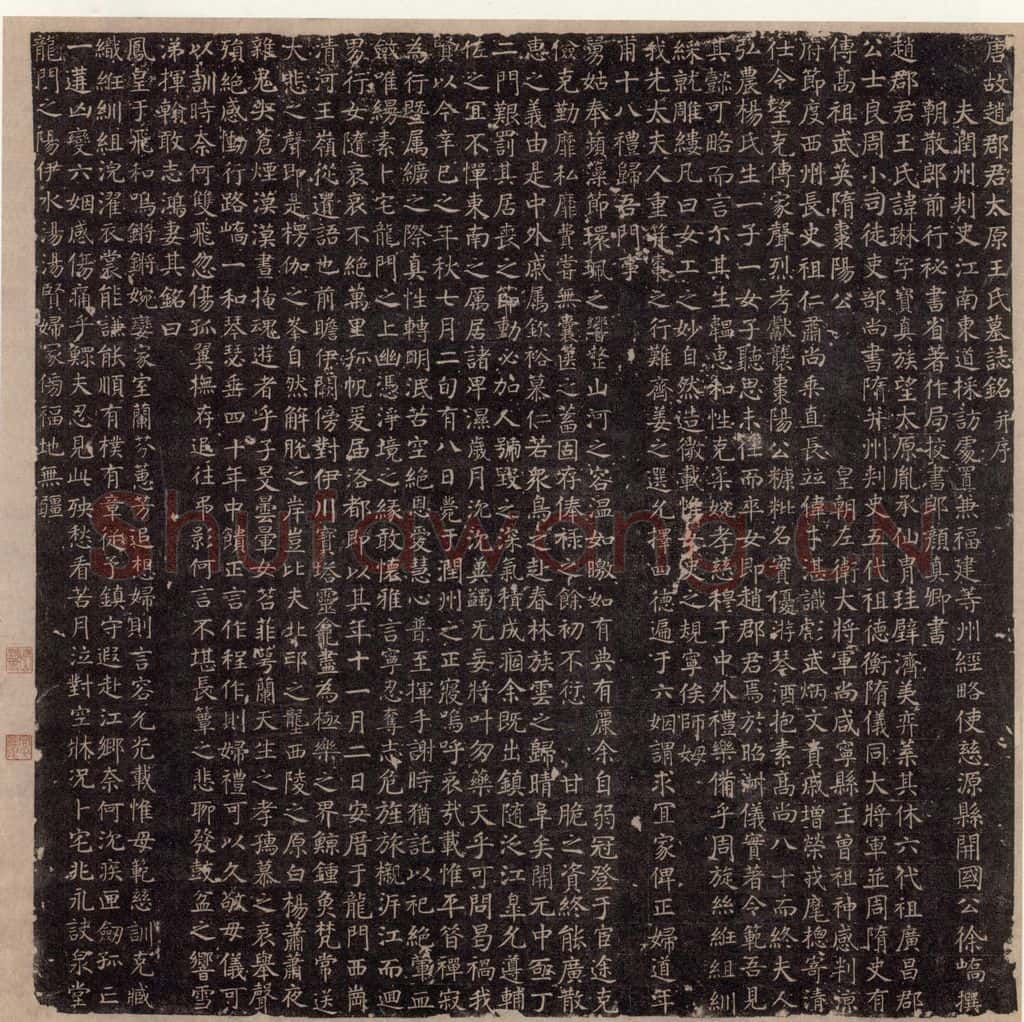 唐故趙郡君太原王氏墓誌銘并序
夫潤州刺史江南東道採訪處置兼福建等州經略使慈源縣開國公徐嶠撰
朝散郎前行秘書省著作局校書郎顏真卿書
趙郡君王氏諱琳字寶真族望太原胤承仙胄珪璧濟美弈葉其休六代祖廣昌郡
公士良周小司徒吏部尚書隋并州刺史五代祖德衡隋儀同大將軍並周隋史有
傳高祖武英隋棗陽公 皇朝左衛大將軍尚咸寧縣主曾祖神感判涼
府節度西州長史祖仁肅尚乘直長並偉才湛識彪武炳文貴戚增榮戎麾摠寄清
仕令望克傳家聲烈考獻襲棗陽公糠粃名實優游琴酒抱素高尚八十而終夫人
弘農楊氏生一子一女子聽思未仕而卒女即趙郡君焉於昭淑儀實著令範吾見
其懿可略而言尒其生韞惠和性克柔婉孝慈稗于中外禮樂備乎周旋絲紝組紃
綵就雕縷凡曰女工之妙自然造微載惟女史之規寧俟師姆
我先太夫人重笄珈之行難齊姜之選允擇四德遍于六姻謂求宜家俾正婦道年
甫十八禮歸吾門事
舅姑奉蘋藻節環珮之響整山河之容溫如暾如有典有麗余自弱冠登于宦途克
儉克勤靡私靡費嘗無囊篋之蓄固存俸祿之餘初不愆 甘脆之資終能廣散
惠之義由是中外戚屬欽裕慕仁若眾鳥之赴春林族雲之歸晴阜矣開元中亟丁
二門艱罰其居喪之節動必加人號毀之深氣積成痼余既出鎮隨泛江皋允遵輔
佐之宜不憚東南之厲居諸卑濕歲月沈沈冀蠲无妄將叶勿藥天乎可問曷禍我
賢以今辛巳之年秋七月二旬有八日薨于潤州之正寢嗚呼哀哉載惟平昔禪寂
為行暨屬纊之際真性轉明泯苦空絕恩愛慧心普至揮手謝時猶託以祀絕葷血
斂唯縵素卜宅龍門之上幽憑淨境之緣敢懷雅言寧忍奪志危旌旅櫬泝江而迴
男行女隨哀哀不絕萬里孤帆爰届洛都即以其年十一月二日安厝于龍門西崗
清河王嶺從遺語也前瞻伊闕傍對伊川寶塔靈龕盡為極樂之界鯨鍾奐梵常送
大悲之聲即是楞伽之峯自然解脫之岸豈比夫北邙之壟西陵之原白楊蕭蕭夜
雜鬼哭蒼煙漠漠晝掩魂遊者乎子旻曇暈女苕菲萼蘭天生之孝孺慕之哀舉聲
殞絕感慟行路嶠一和琴瑟垂四十年中饋正言作程作則婦禮可以久敬母儀可
以訓時奈何雙飛忽傷孤翼撫存追往弔影何言不堪長簟之悲聊發鼓盆之響雪
涕揮翰敢志鴻妻其銘曰
鳳皇于飛和鳴鏘鏘婉孌家室蘭芬蕙芳追想婦則言容允光載惟母範慈訓克臧
織紝紃組浣濯衣裳能謙能順有樸有章從鎮守遐赴江鄉奈何沈疾匣劒孤亡
一遘凶變六姻感傷痛乎鰥夫忍見此殃愁看苦月泣對空牀况卜宅兆永訣泉堂
龍門之陽伊水湯湯賢婦冢傷福地無疆
Shufawang.CN